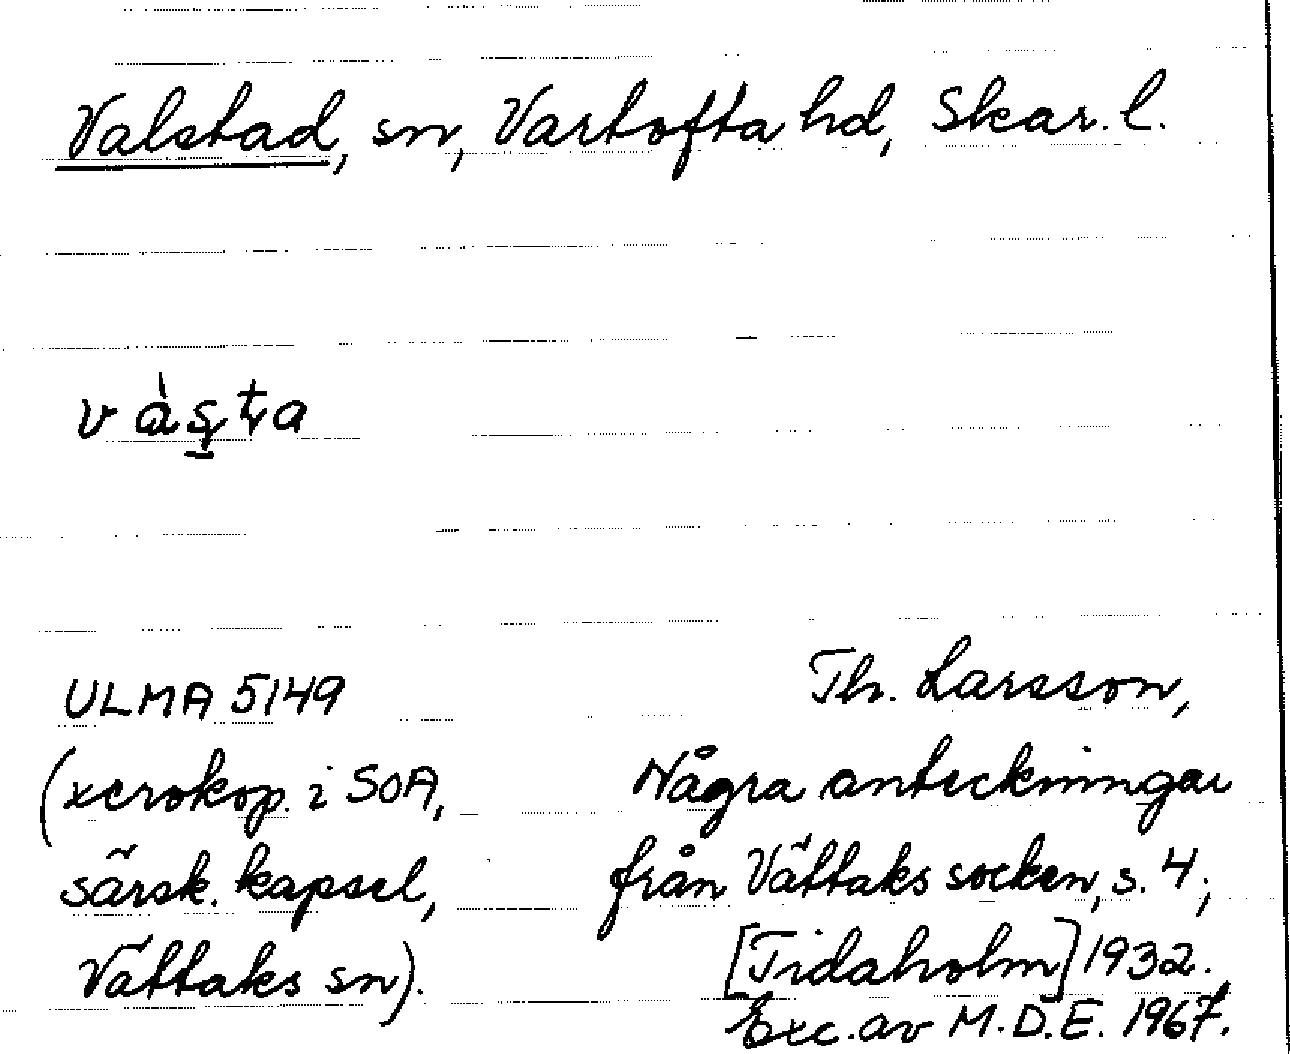 Valstad, sn, Vartofta hd, Skar. l.
ULMA 5149
(xerokop. i SOA,
särsk. kapsel,
Vättaks sn).
Th. Larsson,
Några anteckningar
från Vättaks socken, s. 4;
[Tidaholm] 1932.
Exc. av M.D.E. 1967.